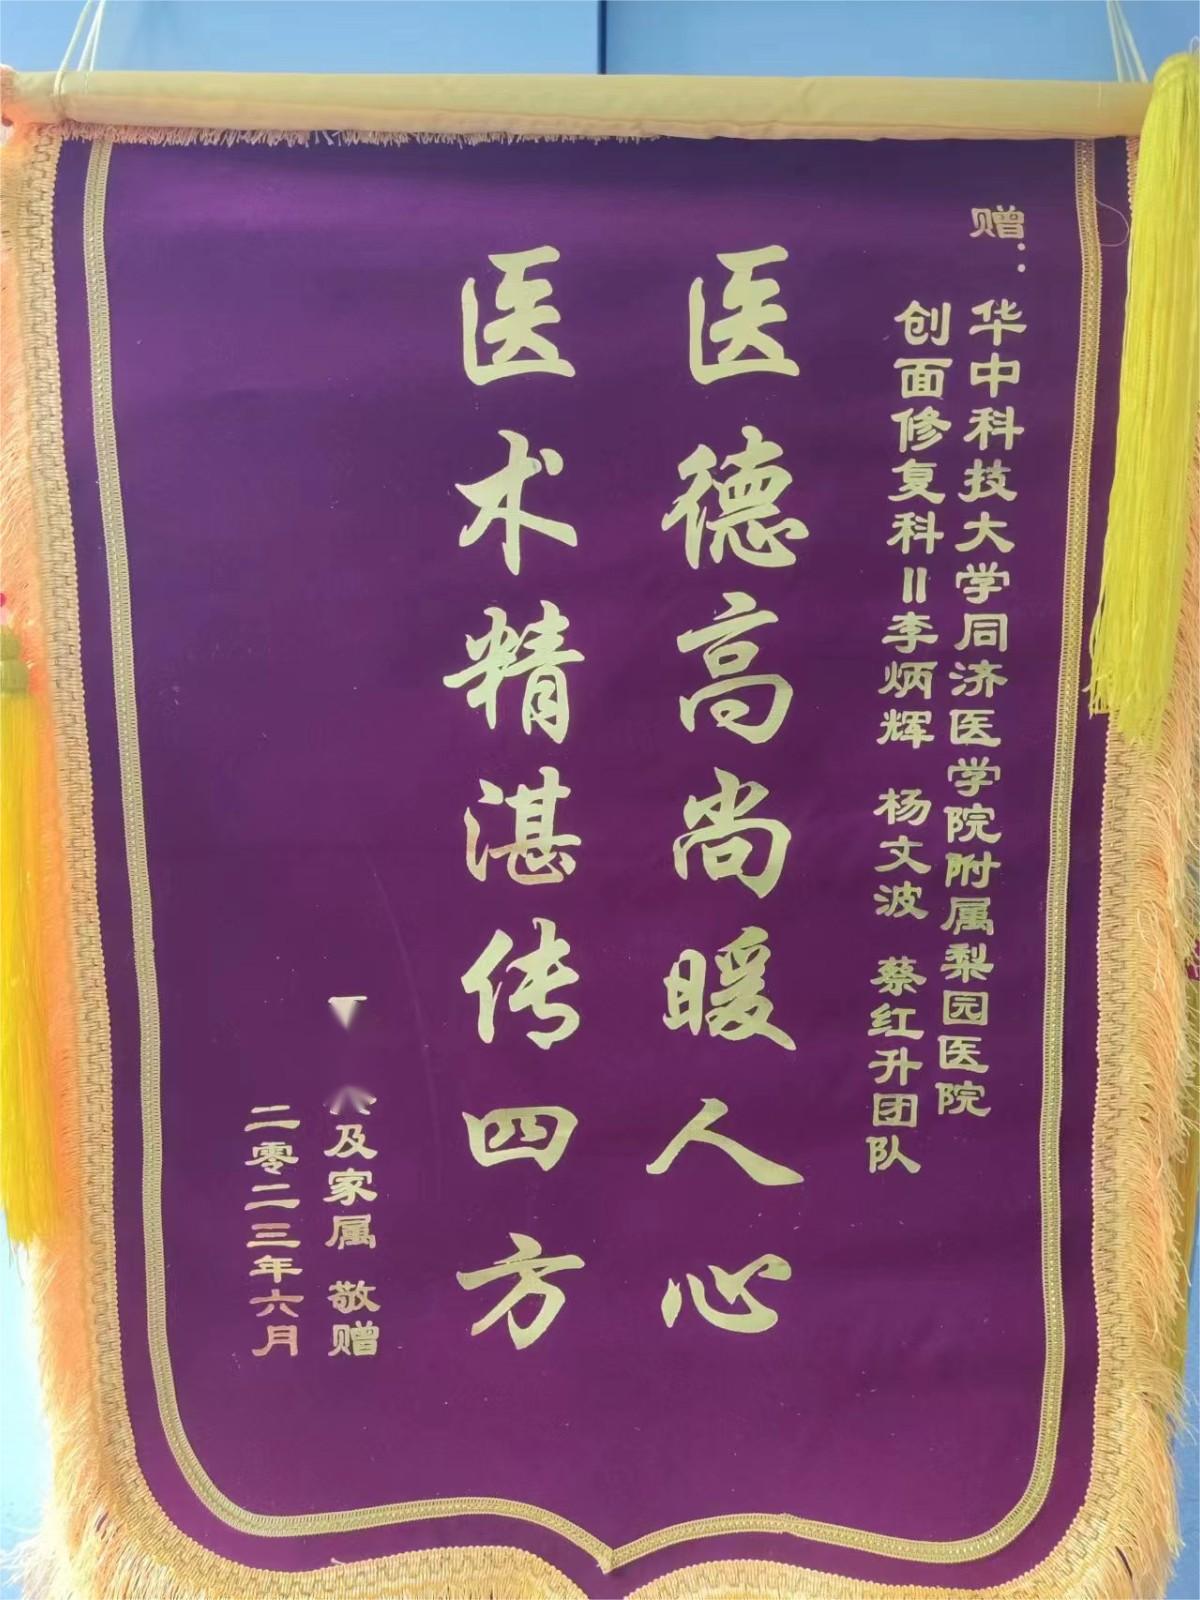 赠：
华中科技大学同济医学院附属梨园医院
创面修复科Ⅱ李炳辉 杨文波 蔡红升团队
医德高尚暖人心
医术精湛传四方
及家属 敬赠
二零二三年六月